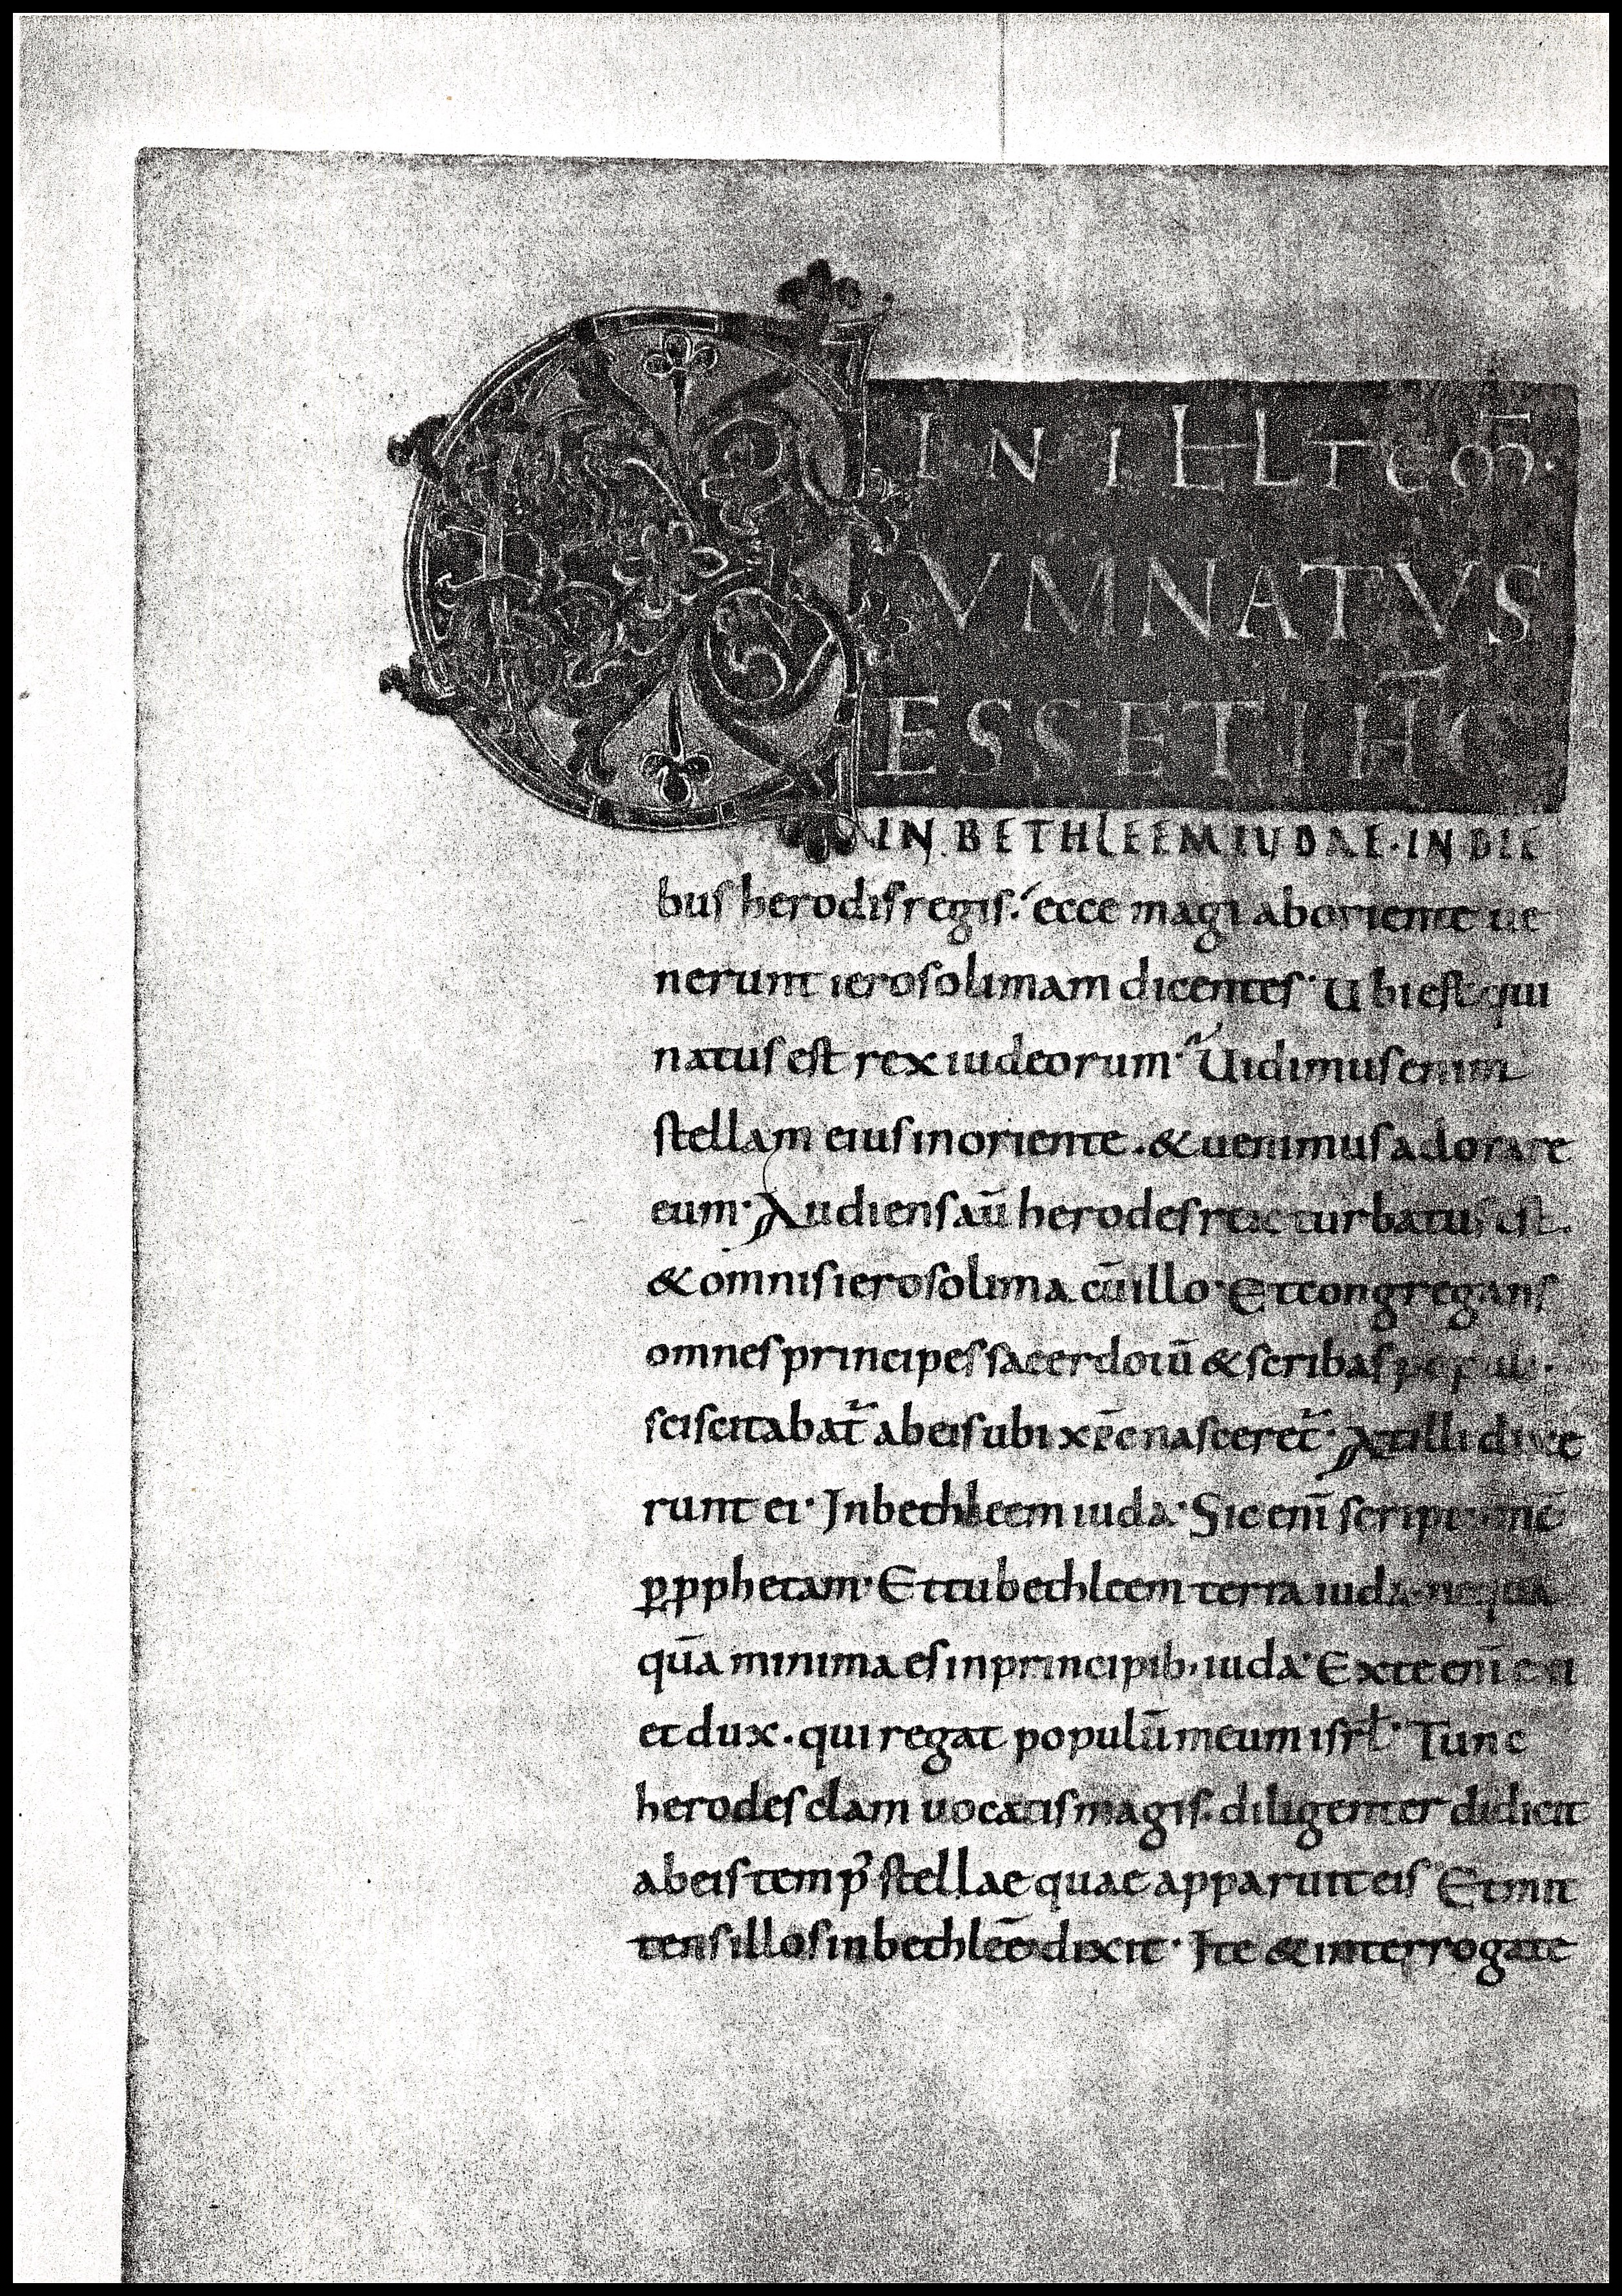 C IN ILL TEM̄.
UM NATUS
ESSET IHC̄
IN BETHLEEM IUDAE·IN DIE
bus herodis regis. ecce magi ab oriente ue
nerunt ierosolimam dicentes· Ubi est qui
natus est rex iudeorum· Uidimus enim
stellam eius in oriente. & uenimus adorare
eum· Audiens aū herodes rex turbatus est.
& omnis ierosolima cū illo· Et congregans
omnes principes sacerdotū & scribas populi.
sciscitabat᷑ ab eis ubi xp̄c nasceret᷑· At illi dixe
runt ei· In bethleem iuda· Sic enī scriptum ē
ꝑ pphetam· Et tu bethleem terra iuda nequa
quā minima es in principib· iuda· Ex te enī exi
et dux. qui regat populū meum isrl̄· Tunc
herodes clam uocatis magis. diligenter didicit
ab eis temp᷒ stellae quae apparuit eis Et mit
tens illos in bethleē dixit· Ite & interrogate